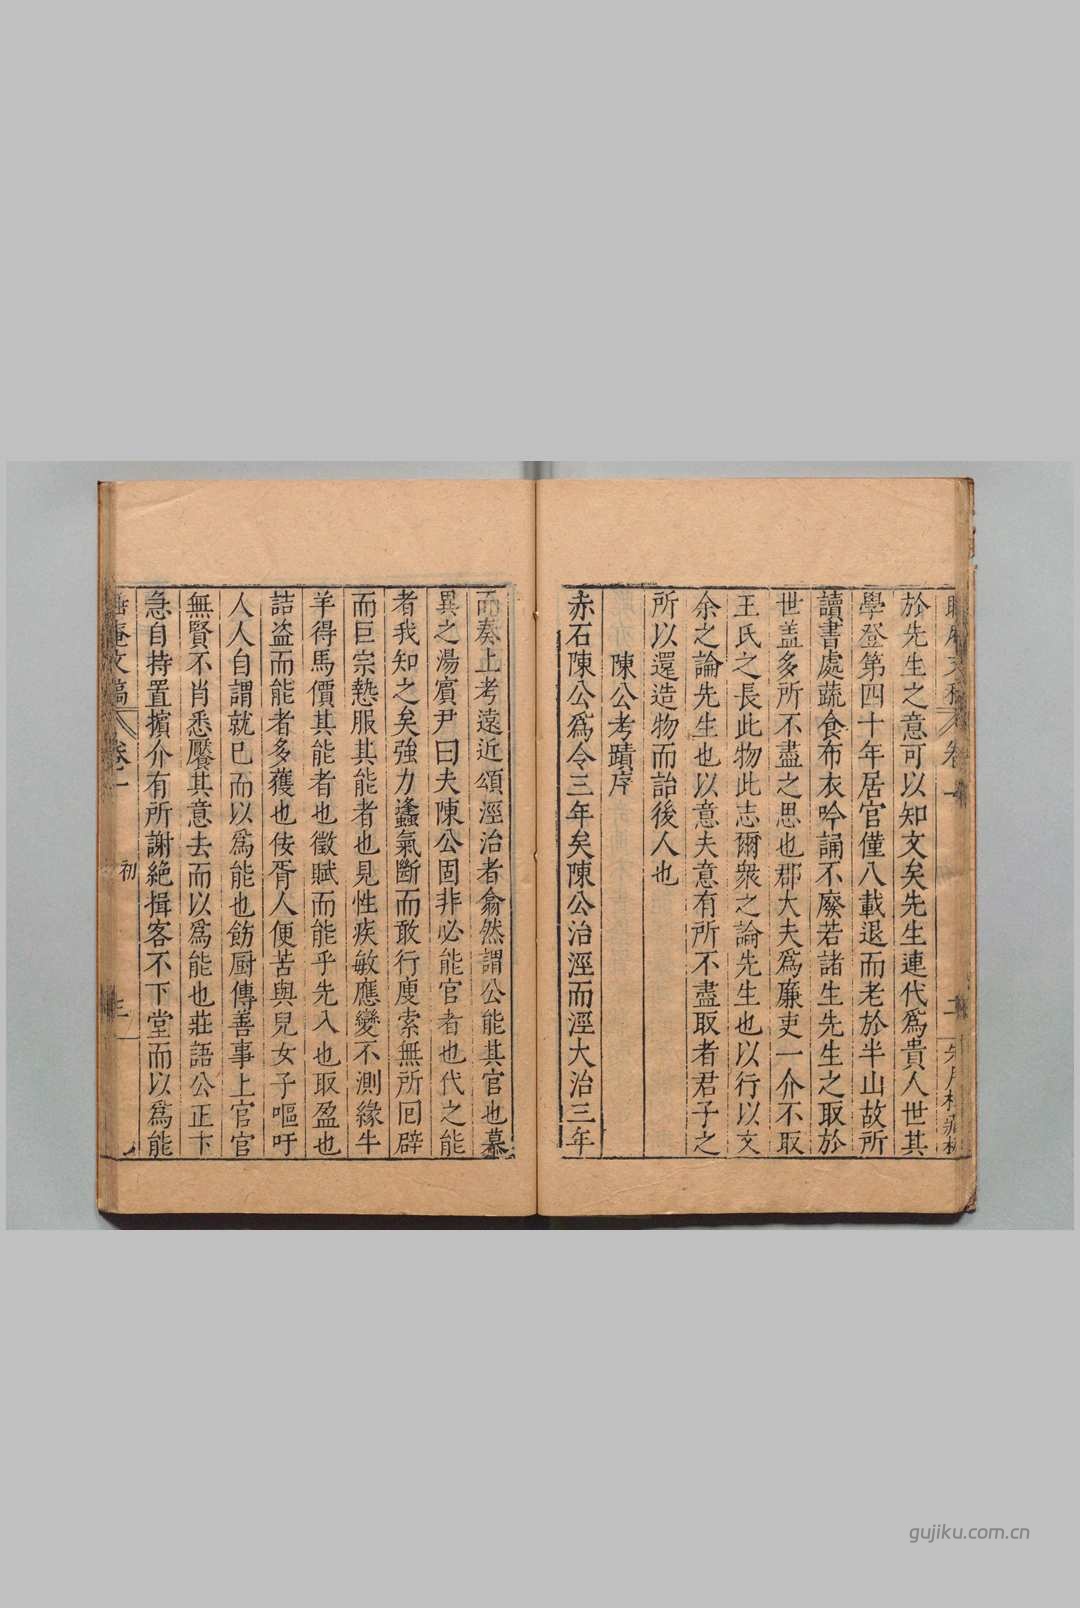 於先生之意可以知文矣先生連代爲貴人世其
學登第四十年居官僅八載退而老於半山故所
讀書處蔬食布衣吟誦不廢若諸生先生之取於
世盖多所不盡之思也郡大夫爲廉吏一介不取
王氏之長此物此志爾衆之論先生也以行以文
余之論先生也以意夫意有所不盡取者君子之
所以還造物而詒後人也
陳公考蹟序
赤石陳公爲令三年矣陳公治涇而涇大治三年
而奏上考遠近頌涇治者翕然謂公能其官也慕
異之湯賓尹曰夫陳公固非必能官者也代之能
者我知之矣強力蠭氣斷而敢行廋索無所囘辟
而巨宗慹服其能者也見性疾敏應變不測緣牛
羊得馬價其能者也徵賦而能乎先入也取盈也
詰盗而能者多獲也倿胥人便苦與兒女子嘔吁
人人自謂就已而以爲能也飭厨傳善事上官官
無賢不肖悉饜其意去而以爲能也莊語公正卞
急自持置擯介有所謝絶揖客不下堂而以爲能
睡庵文稿
卷一
初
三
卷一
二
gujiku.com.cn